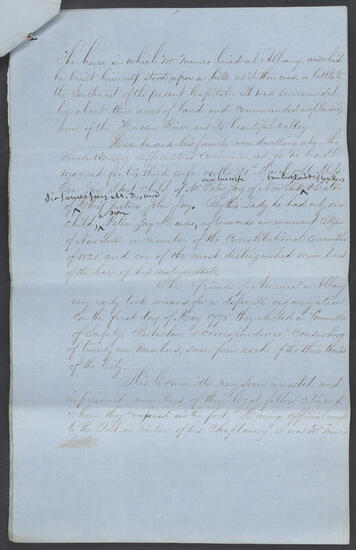 The house in which Mr Munro lived at Albany, and which
he built himself stood upon a hill, as it then was, a little to
the Southeast of the present Capitol. It was surrounded
by about three acres of land and commanded a splendid
view of the Hudson River and its beautiful valley
Here he and his family were dwelling when the
Revolutionary difficulties commenced, for he had
married for his third wife,
Eve the eldest child of Mr Peter Jay of New York & Sister
of Chief Justice John Jay. By this Lady he had only one
child, son Peter Jay Munro, afterwards an eminent Citizen
of New York a member of the Constitutional Convention
of 1821 and one of the most distinguished members
of the bar of his native state.
The "Friends of America" in Albany
very early took means for a separate organization
On the first day of May 1775 they elected a "Committee
of Safety, Protection & Correspondence" Consisting
of twenty one members, seven from each of the three wards
of the City.
This Committee very soon arrested and
imprisoned members of their loyal fellow citizens
whom they confined in the fort. Having official access
to the Fort in virtue of his Chaplaincy, it was Mr Munro